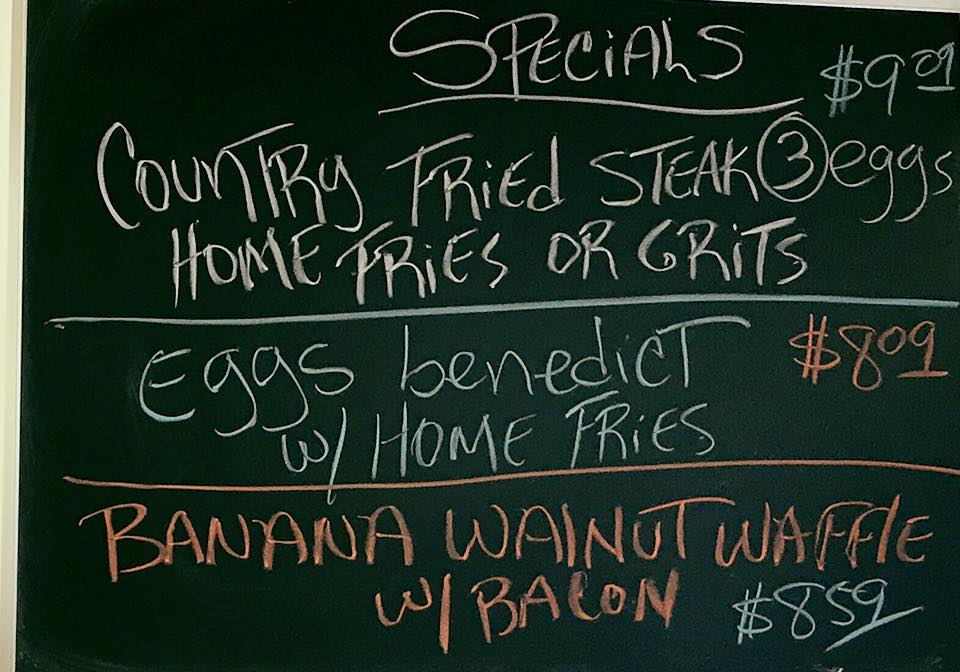 SPECiALS $9.09
COUNTRy FRiEd STEAK 3 eggs
HOME FRiES OR GRiTS
Eggs benedicT $8.09
w/ HOME FRiES
BANANA WAlNUT WAFFlE
w/ BACON $8.59